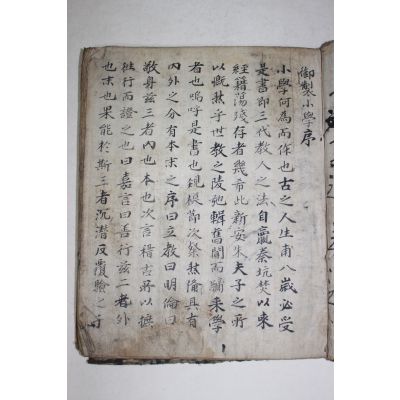 御製小學序
小學何為而作也古之人生甫八歲必受
是書即三代教人之法自嬴秦坑焚以來
經籍蕩殘存者幾希此新安朱夫子之所
以慨然乎世教之陵弛輯舊聞而牖來學
者也嗚呼是書也規模節次粲然備具有
內外之分有本末之序曰立教曰明倫曰
敬身玆三者內也本也次言稽古所以摭
徃行而證之也曰嘉言曰善行玆二者外
也末也果能於斯三者沉潜反覆驗之于